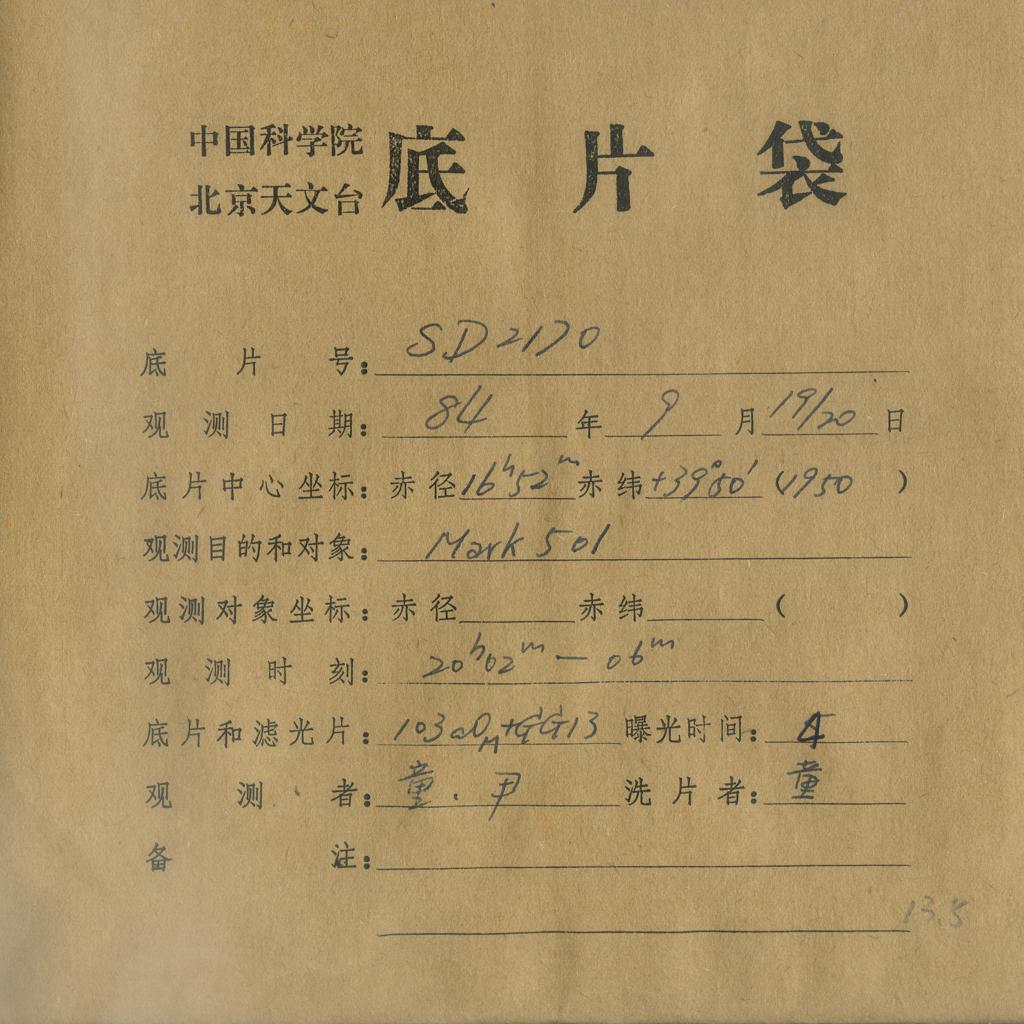 中国科学院
北京天文台
底片袋
底片号：SD2170
观测日期：84年9月19/20日
底片中心坐标：赤径16ʰ52ᵐ赤纬+39°50′（1950）
观测目的和对象：Mark 501
观测对象坐标：赤径 赤纬 （ ）
观测时刻：20ʰ02ᵐ—06ᵐ
底片和滤光片：103aO_M+GG13 曝光时间：4
观测者：童．尹 洗片者：童
备注：
13.5